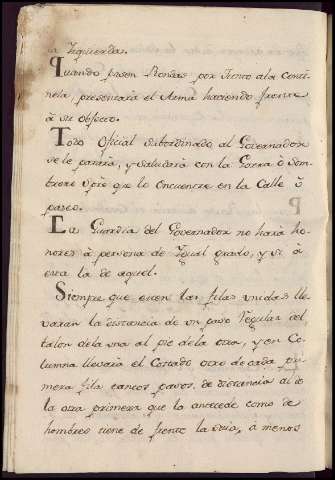 a Izquierda.
Quando pasen Rondas por Junto ala Conti
nela, presentara el Arma haciendo frente
à su obsecto.
Todo Oficial subordinado al Governador
se le parará, y saludará con la Gorra ò Som
brero spre que lo encuentre en la Calle ò
paseo.
La Guardia del Governador no hará ho
nores à persona de Igual grado, y si à
esta la de aquel.
Siempre que esten las filas unidas lle
varan la distancia de un paso Regular del
talon dela una al pie de la otra, y en Co
lumna llevará el Costado otro de cada pri
mera fila tantos pasos de distancia al de
la otra primera que la antecede como de
hombres tiene de frente la suia, à menos